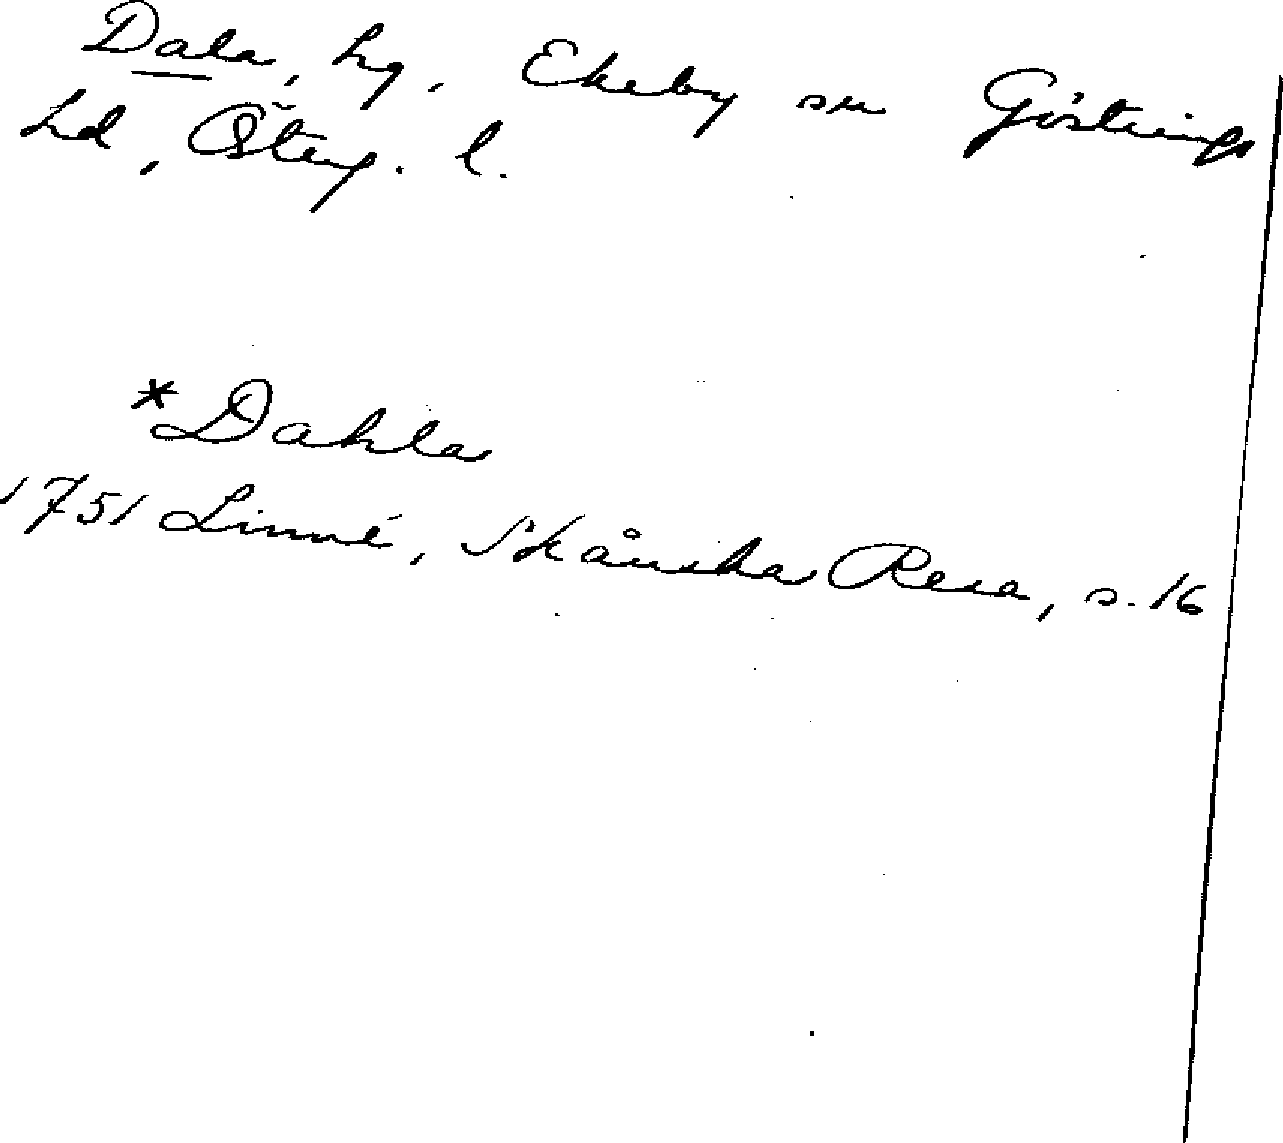 Dala, hg. Ekeby sn Göstrings
hd, Österg. l.
*Dahla
1751 Linné, Skånska Resa, s. 16